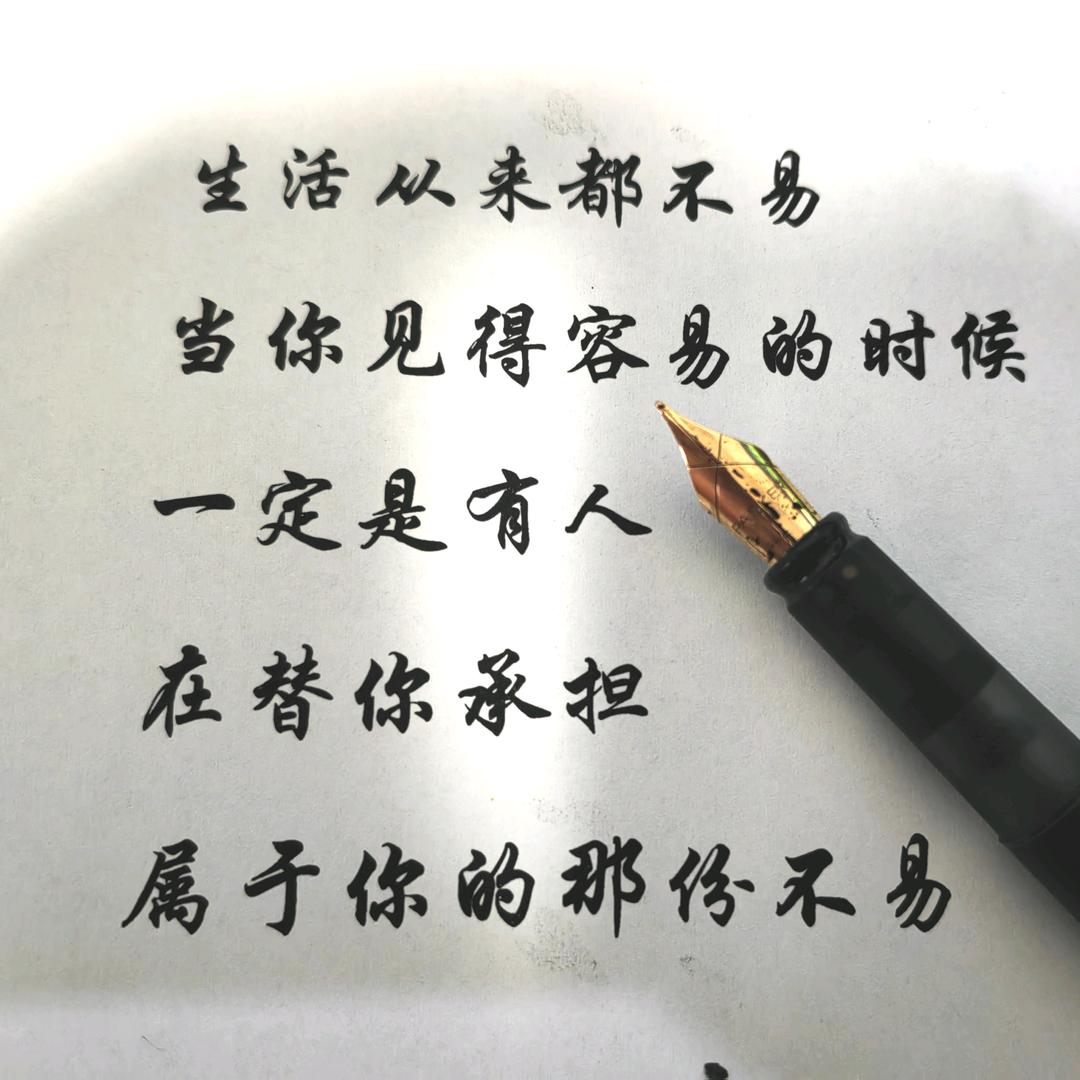 生活从来都不易
当你见得容易的时候
一定是有人
在替你承担
属于你的那份不易